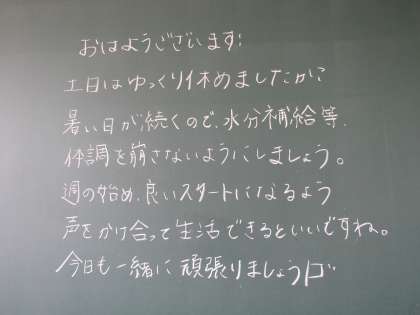 おはようございます!
土日はゆっくり休めましたか?
暑い日が続くので、水分補給等、
体調を崩さないようにしましょう。
週の始め、良いスタートになるよう
声をかけ合って生活できるといいですね。
今日も一緒に頑張りましょう